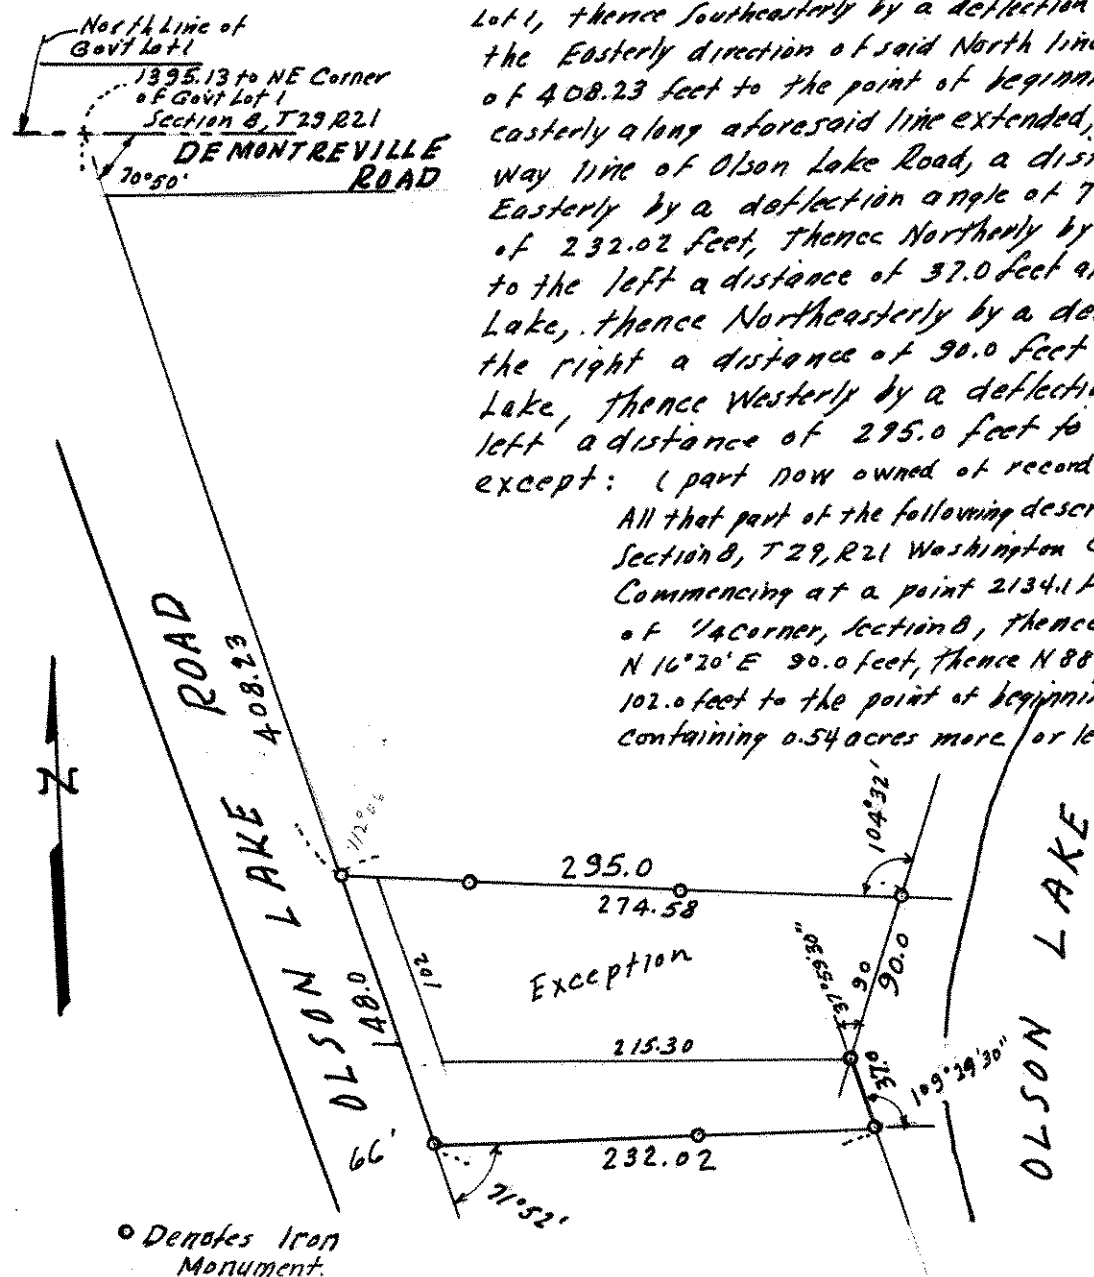 North Line of
Gov't Lot 1
1395.13 to NE Corner
of Gov't Lot 1
Section 8, T29 R21
DEMONTREVILLE
ROAD
70°50'
Lot 1, thence Southeasterly by a deflection
the Easterly direction of said North line
of 408.23 feet to the point of beginni
easterly along aforesaid line extended,
way line of Olson Lake Road, a dist
Easterly by a deflection angle of 7
of 232.02 feet, Thence Northerly by
to the left a distance of 37.0 feet a
Lake, thence Northeasterly by a de
the right a distance of 90.0 feet
Lake, Thence Westerly by a deflecti
left a distance of 295.0 feet to
except: ( part now owned of record
All that part of the following descr
Section 8, T29, R21 Washington
Commencing at a point 2134.1
of 1/4 corner, Section 8, Thence
N 16°20' E 90.0 feet, Thence N 88
102.0 feet to the point of beginni
containing 0.54 acres more or le
OLSON LAKE ROAD
408.23
N
104°32'
295.0
274.58
Exception
102
148.0
37°59'30"
90
90.0
215.30
37.0
109°29'30"
232.02
71°52'
66'
OLSON LAKE
Denotes Iron
Monument.